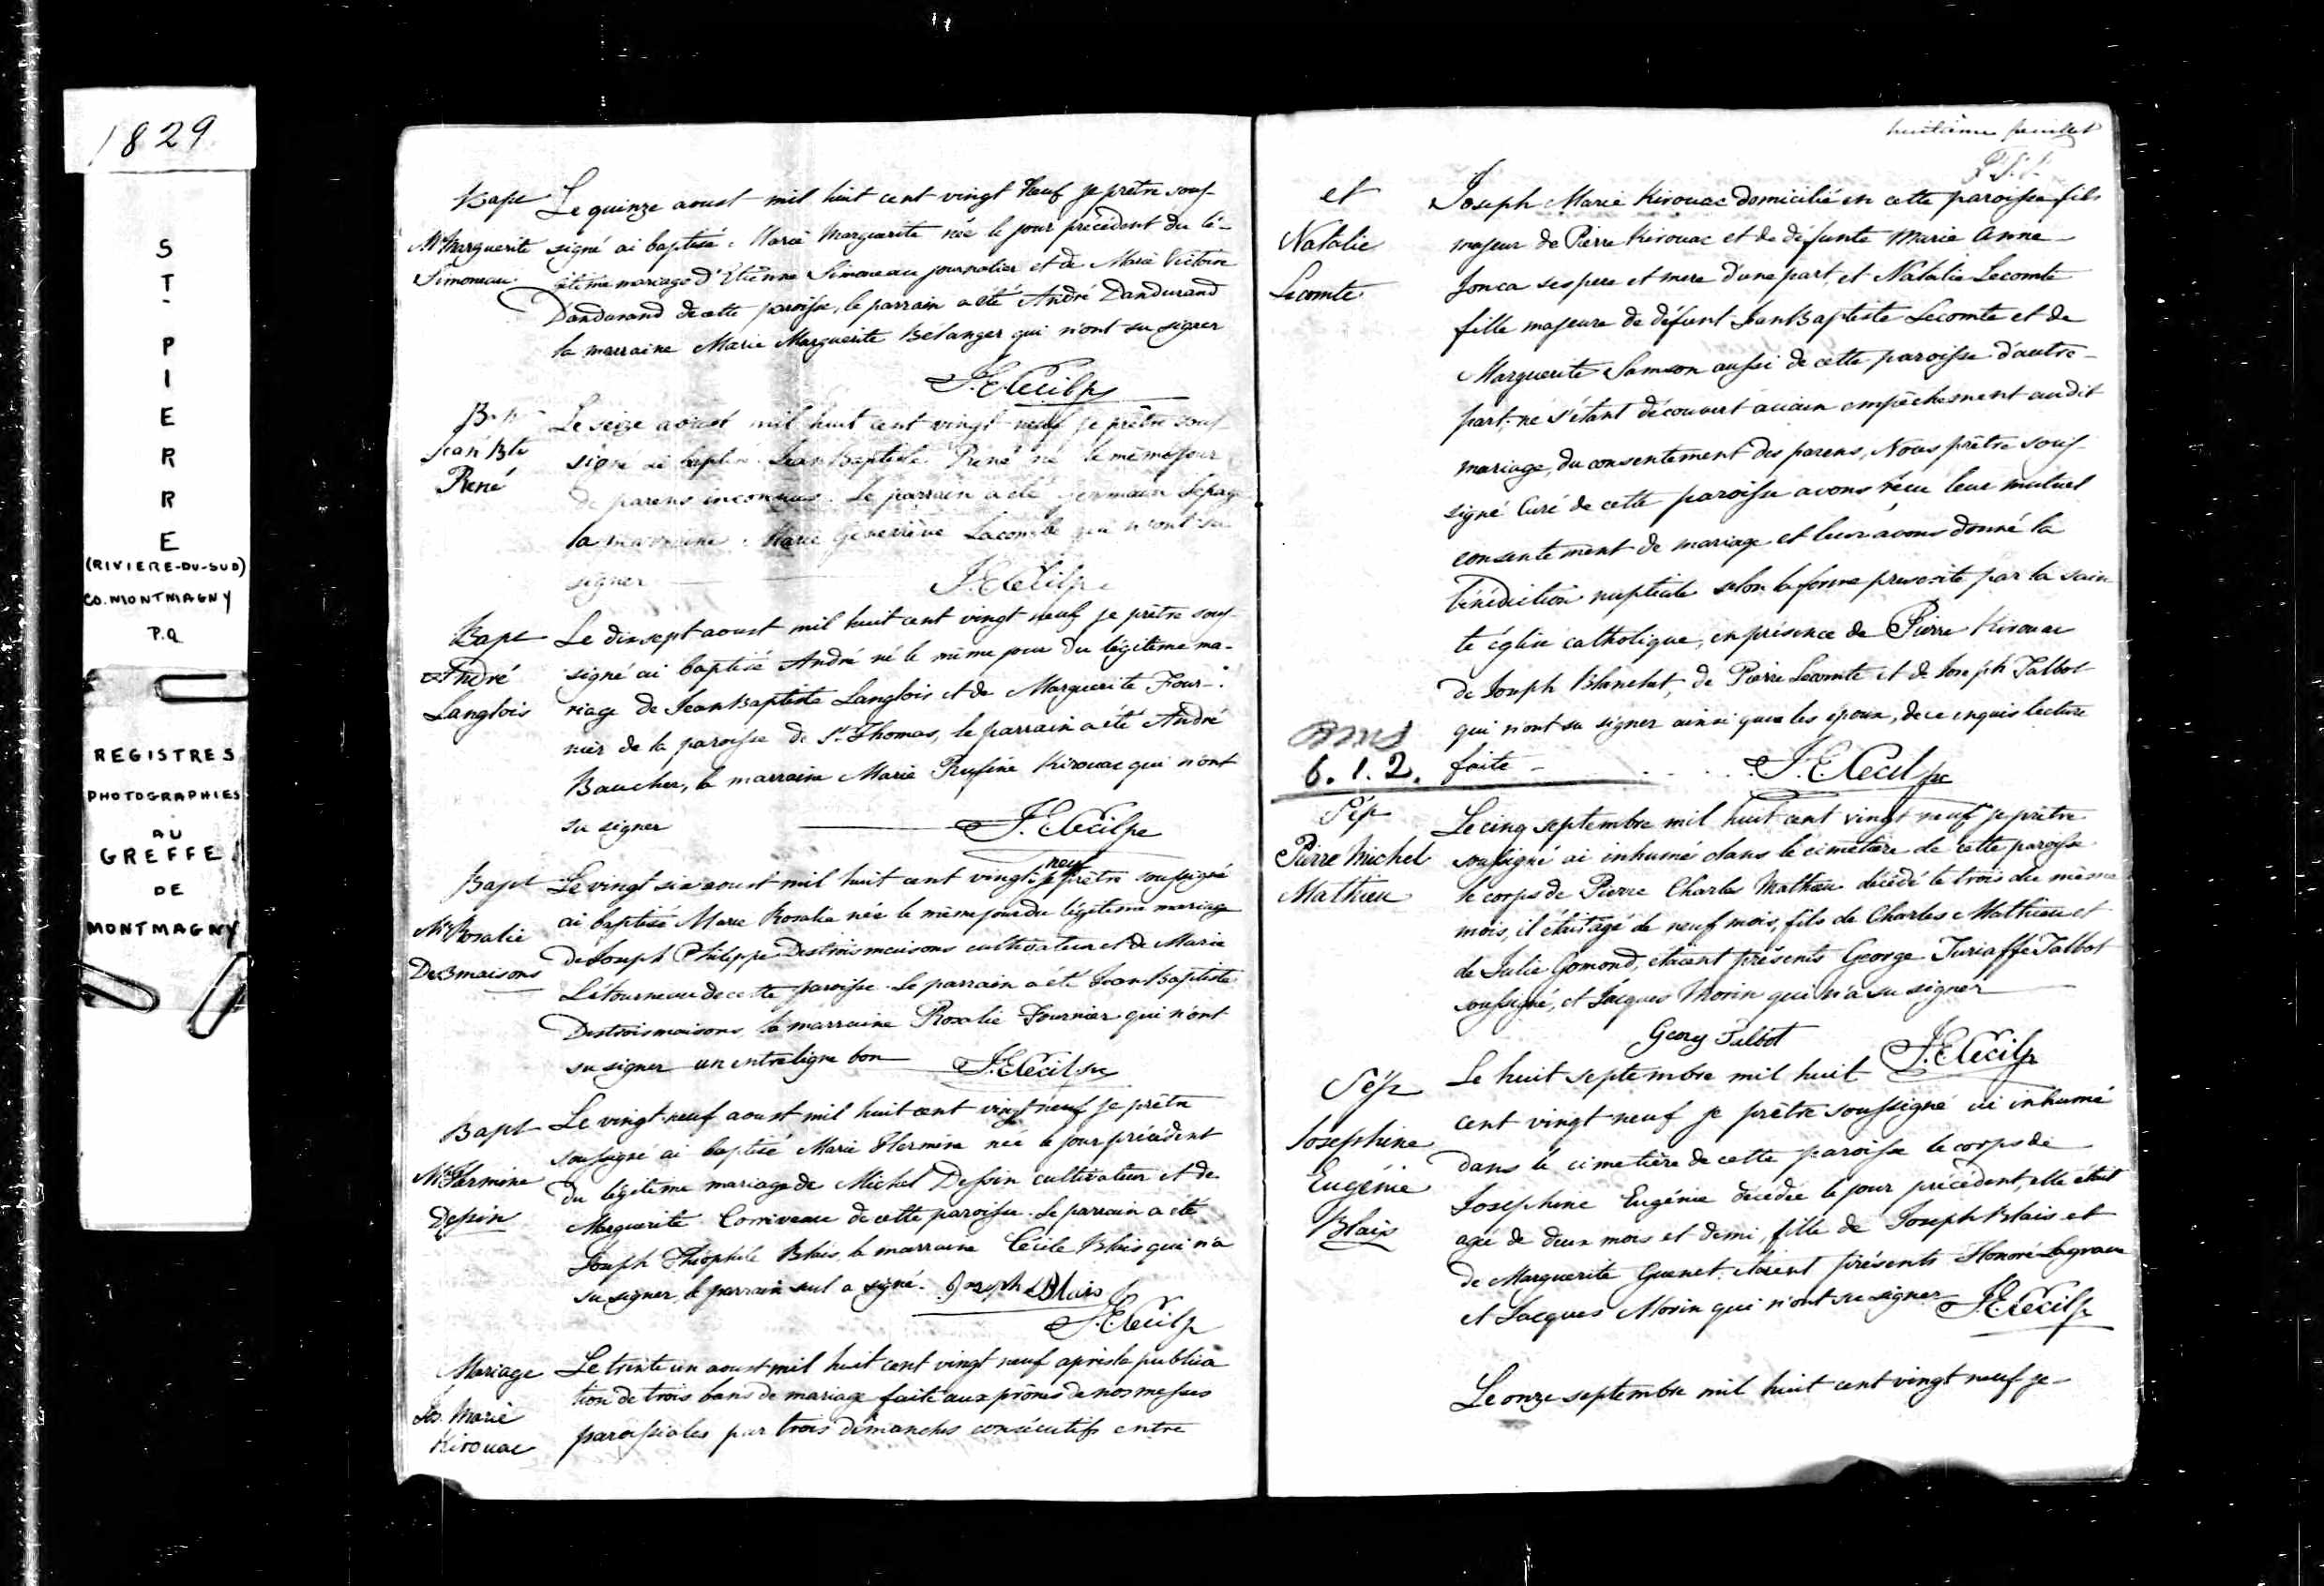 1829
ST
PIERRE
(RIVIERE-DU-SUD)
CO. MONTMAGNY
P.Q
REGISTRES
PHOTOGRAPHIES
AU
GREFFE
DE
MONTMAGNY
Bapt
M Marguerite
Simoneau
Le quinze aoust mil huit cent vingt neuf je prêtre sous-
signé ai baptisé Marie Marguerite née le jour précédent du lé-
gitime mariage d'Etienne Simoneau journalier et de Marie Victoire
Dandurand de cette paroisse, le parrain a été André Dandurand
la marraine Marie Marguerite Belanger qui n'ont su signer
J.E. Cecil ptre
Jean Bte
René
Le seize aoust mil huit cent vingt neuf je prêtre sous
signé ai baptisé Jean Baptiste René né le même jour
de parens inconnus. Le parrain a été Germain Lepage
la marraine Marie Geneviève Lacombe qui n'ont su
signer J.E. Cecil ptre
Bapt
André
Langlois
Le dixsept aoust mil huit cent vingt neuf je prêtre sous
signé ai baptisé André né le même jour du légitime ma-
riage de Jean Baptiste Langlois et de Marguerite Four-
nier de la paroisse de St Thomas, le parrain a été André
Baucher, la marraine Marie Rufine Kirouac qui n'ont
su signer J.E. Cecil ptre
Bapt
M Rosalie
Des3maisons
Le vingt six aoust mil huit cent vingt neuf je prêtre soussigné
ai baptisé Marie Rosalie née le même jour du légitime mariage
de Joseph Philippe Destroismaisons cultivateur et de Marie
Létourneau de cette paroisse. Le parrain a été Jean Baptiste
Destroismaisons, la marraine Rosalie Fournier qui n'ont
su signer un entreligne bon J.E. Cecil ptre
Bapt
M Hermine
Dessin
Le vingt-neuf aoust mil huit cent vingt neuf je prêtre
soussigné ai baptisé Marie Hermine née le jour précédent
du légitime mariage de Michel Dessin cultivateur et de
Marguerite Corriveau de cette paroisse. Le parrain a été
Joseph Théophile Blais, la marraine Cécile Blais qui n'a
su signer, le parrain seul a signé. Joseph Blais
J.E. Cecil ptre
Mariage
Jos. Marie
Kirouac
Le trente un aoust mil huit cent vingt neuf après la publica
tion de trois bans de mariage faite aux prônes de nos messes
paroissiales par trois dimanches consécutifs entre
huitième feuillet
et
Natalie
Lecomte
Joseph Marie Kirouac domicilié en cette paroisse fils
majeur de Pierre Kirouac et de défunte Marie Anne
Jonca ses pere et mere d'une part, et Natalie Lecomte
fille majeure de défunt Jean Baptiste Lecomte et de
Marguerite Samson aussi de cette paroisse d'autre
part, ne s'étant découvert aucun empêchement au dit
mariage, du consentement des parens, Nous prêtre sous-
signé Curé de cette paroisse avons recu leur mutuel
consentement de mariage et leur avons donné la
bénédiction nuptiale selon la forme prescrite par la sain
te église catholique, en présence de Pierre Kirouac
de Joseph Blanchet, de Pierre Lecomte et de Joseph Talbot
qui n'ont su signer ainsi que les époux, de ce enquis lecture
faite J.E. Cecil ptre
6. 1. 2.
Sép
Pierre Michel
Mathieu
Le cinq septembre mil huit cent vingt neuf je prêtre
soussigné ai inhumé dans le cimetière de cette paroisse
le corps de Pierre Charles Mathieu décédé le trois du même
mois, il était agé de neuf mois, fils de Charles Mathieu et
de Julie Gomond, étaient présents George Talbot
soussigné, et Jacques Morin qui n'a su signer
Geory Talbot
J.E. Cecil ptre
Sép
Josephine
Eugénie
Blais
Le huit septembre mil huit
cent vingt neuf je prêtre soussigné ai inhumé
dans le cimetière de cette paroisse le corps de
Josephine Eugénie décédée le jour précédent, elle était
agée de deux mois et demi, fille de Joseph Blais et
de Marguerite Guenet. étaient présents Honoré
et Jacques Morin qui n'ont su signer J.E. Cecil ptre
Le onze septembre mil huit cent vingt neuf je